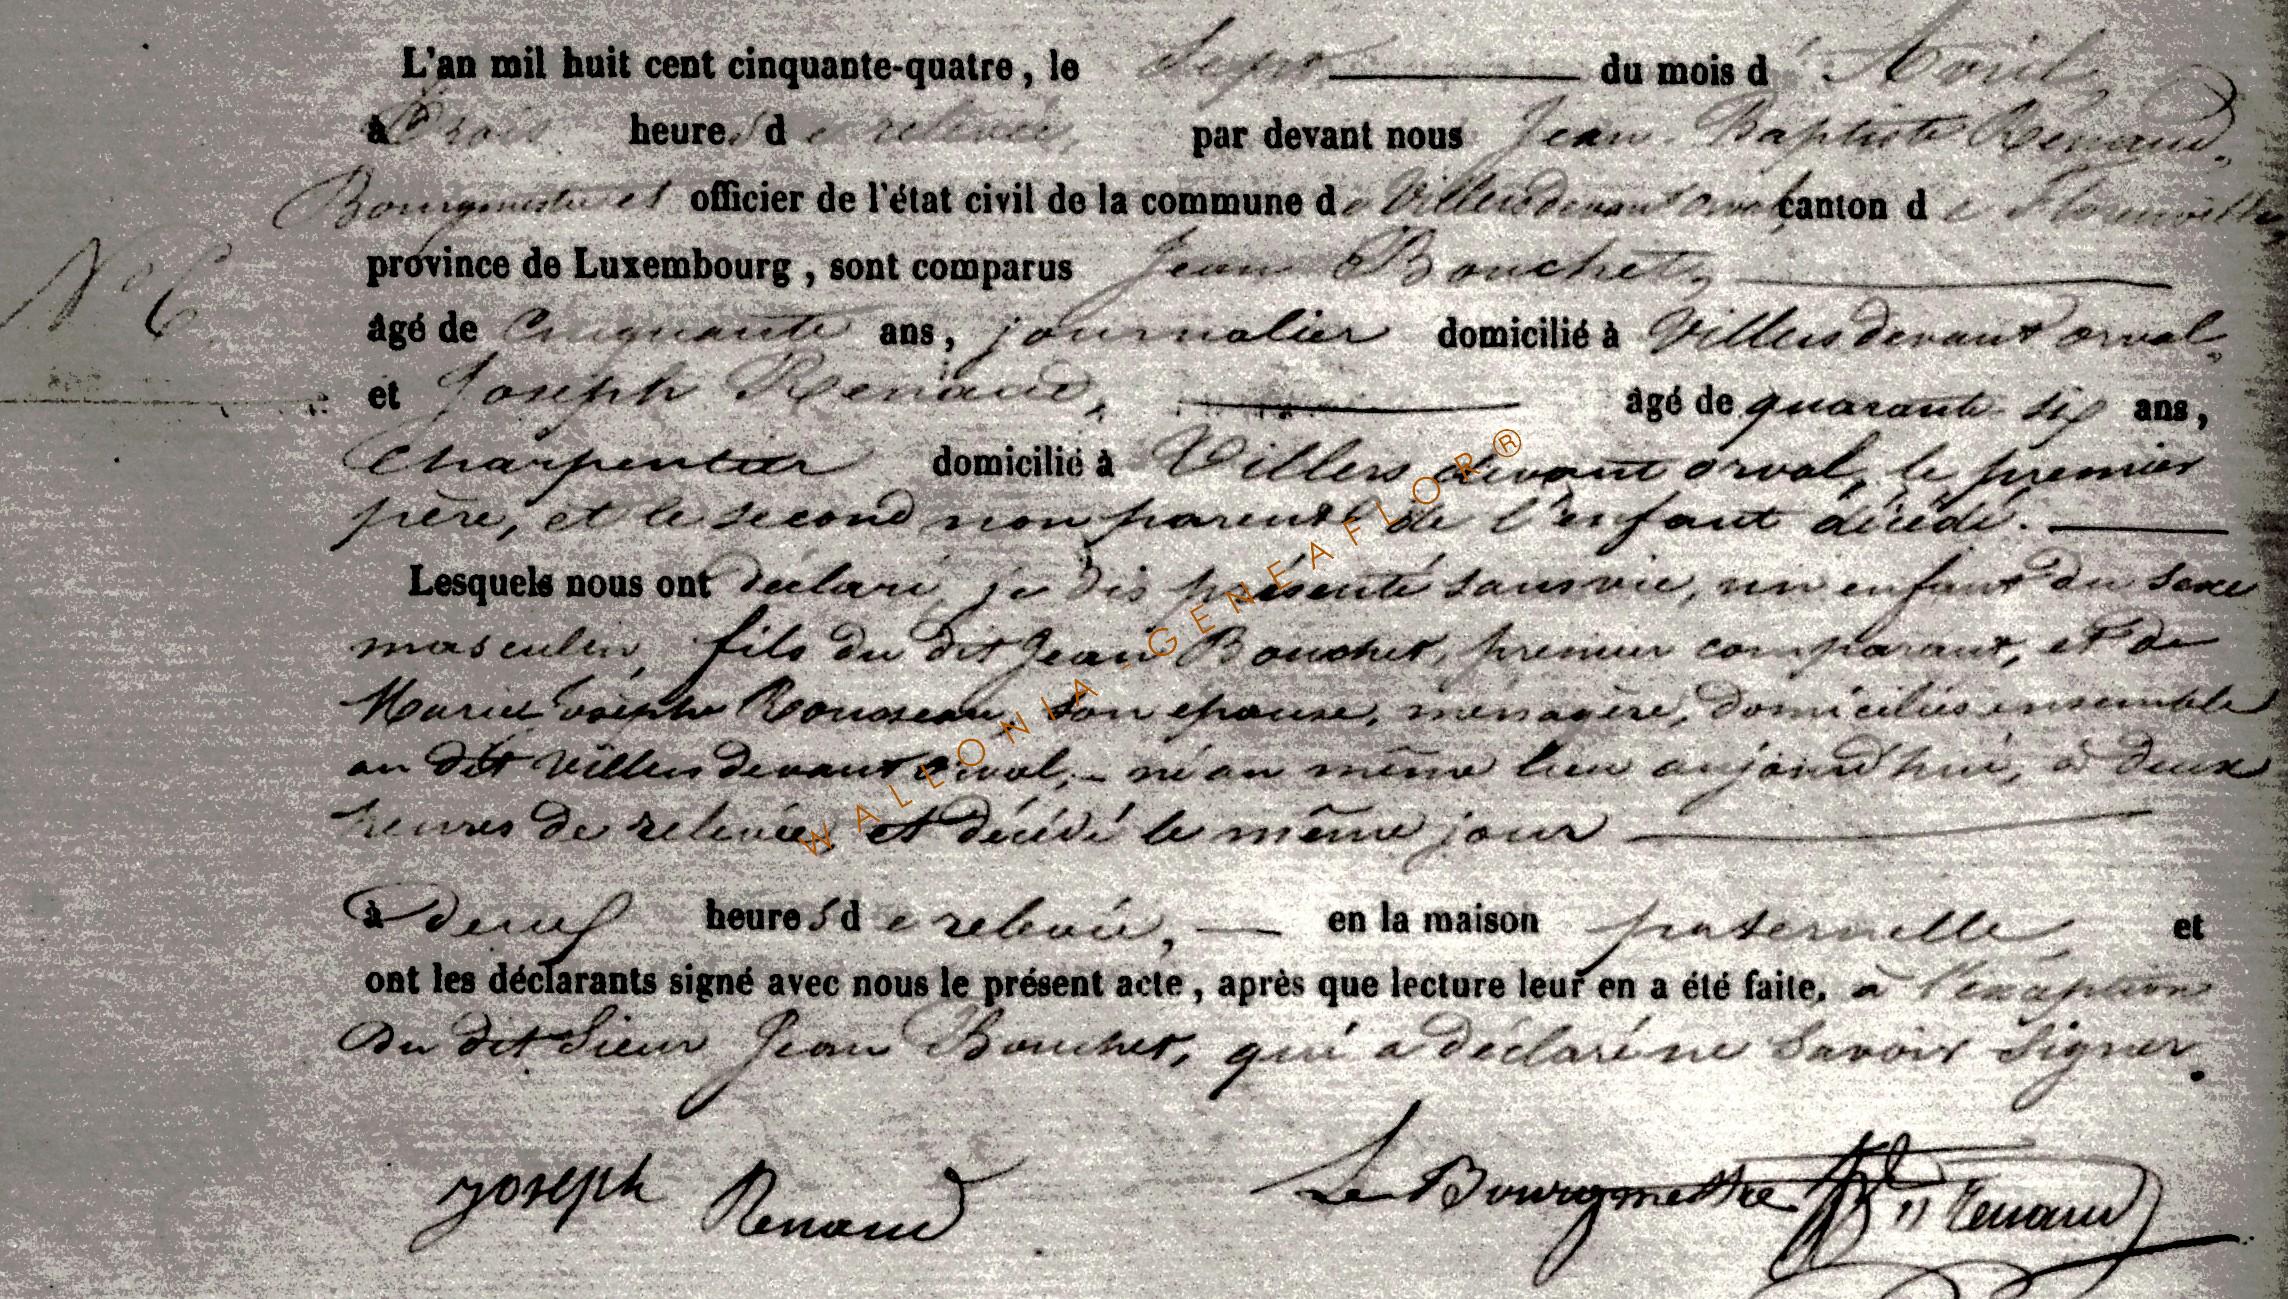 L'an mil huit cent cinquante-quatre, le Sept du mois d'Avril,
à Trois heures de relevée, par devant nous Jean Baptiste Renaud,
Bourgmestre et officier de l'état civil de la commune de Villers devant orval, canton de Florenville,
province de Luxembourg, sont comparus Jean Bouchet,
N° 6
âgé de Cinquante ans, journalier domicilié à Villers devant orval,
et Joseph Renaud, âgé de quarante six ans,
Charpentier domicilié à Villers devant orval, le premier
père, et le second non parent de l'enfant décédé.
Lesquels nous ont déclaré, je dis présenté sans vie, un enfant du sexe
masculin, fils du dit Jean Bouchet, premier comparant, et de
Marie Joseph Rousseau, son épouse, ménagère, domiciliés ensemble
au dit Villers devant orval, né au même lieu aujourd'hui, à deux
heures de relevée, et décédé le même jour
à deux heures de relevée, en la maison paternelle, et
ont les déclarants signé avec nous le présent acte, après que lecture leur en a été faite, à l'exception
du dit Sieur Jean Bouchet, qui a déclaré ne savoir signer.
Joseph Renaud
Le Bourgmestre Renaud
WALLONIA GENEAFLOR®